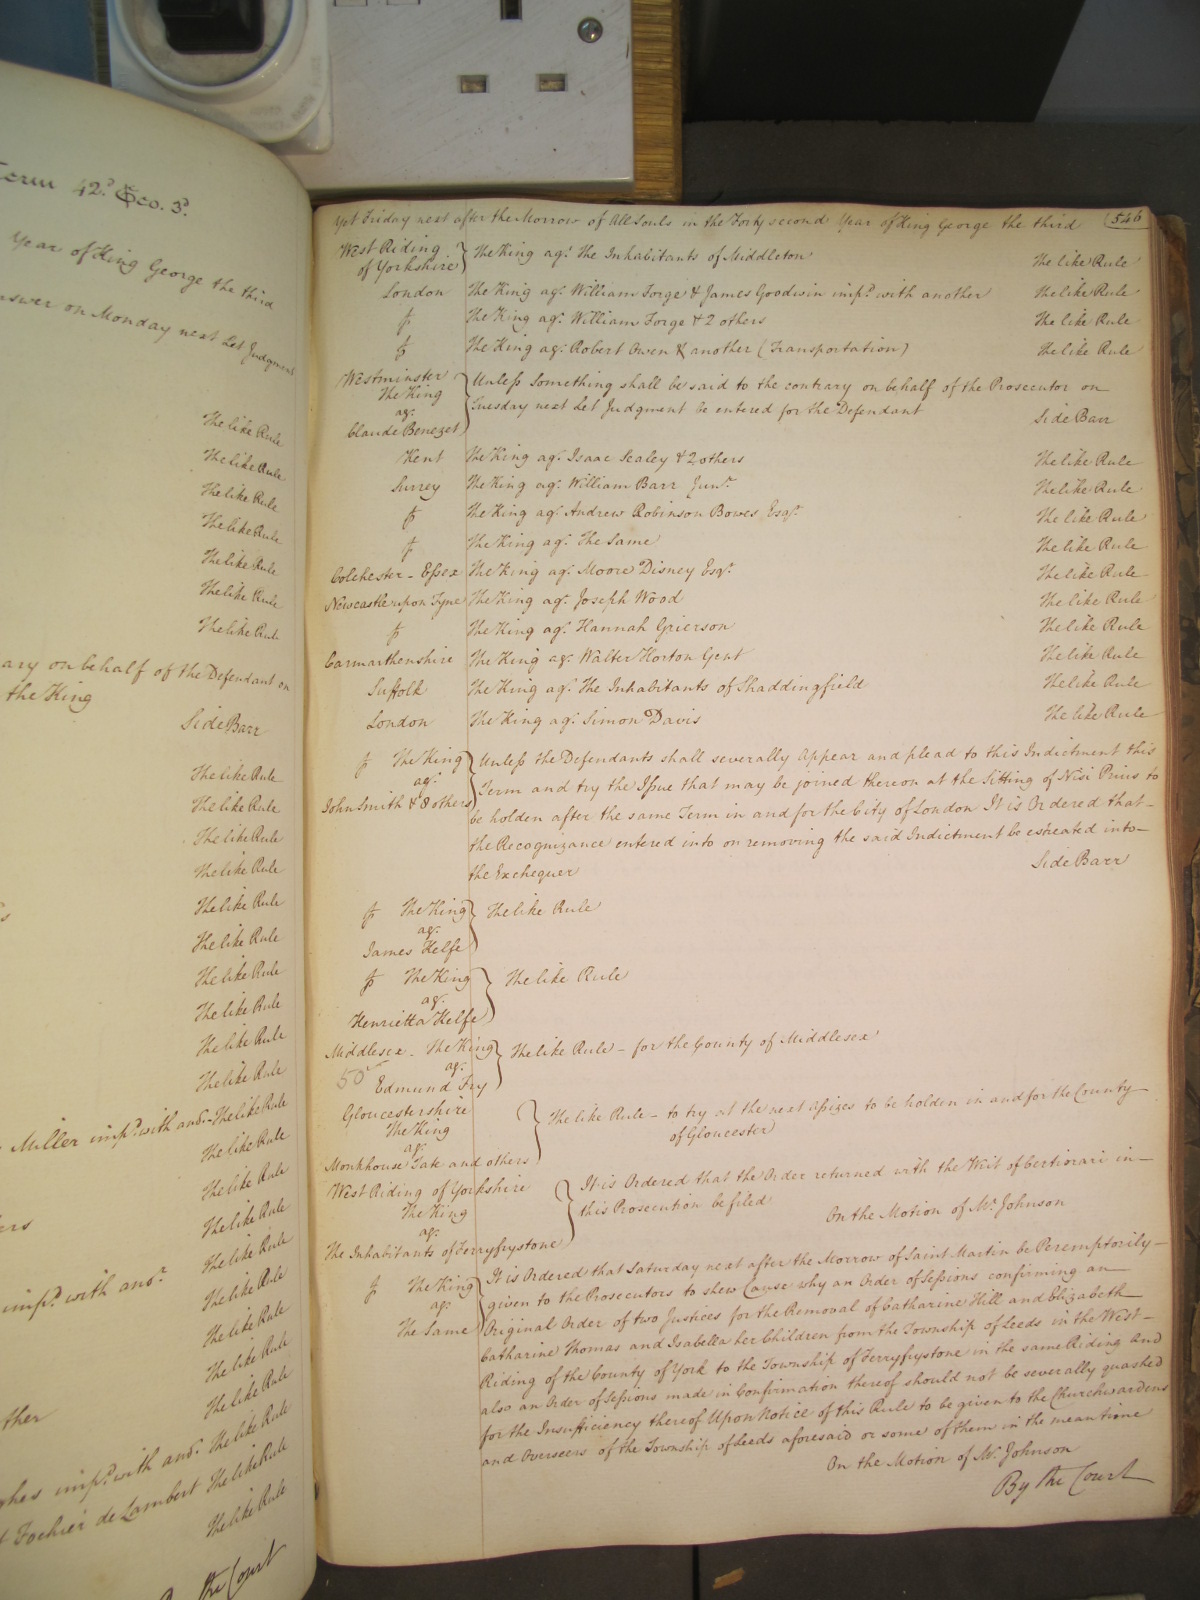 Term 42.d Geo. 3.d
Year of King George the third
answer on Monday next let Judgment
The like Rule
The like Rule
The like Rule
The like Rule
The like Rule
The like Rule
The like Rule
ary on behalf of the Defendant on
the King
Side Barr
The like Rule
The like Rule
The like Rule
The like Rule
The like Rule
The like Rule
The like Rule
The like Rule
The like Rule
The like Rule
Miller imp.d with anor. The like Rule
The like Rule
The like Rule
The like Rule
The like Rule
imp.d with ano.r The like Rule
The like Rule
The like Rule
The like Rule
ther
ghes imp.d with ano.r The like Rule
Fochier de Lambert The like Rule
The like Rule
By the Court
Yet Friday next after the Morrow of All Souls in the Forty second Year of King George the third 546
West Riding of Yorkshire } The King ag.t The Inhabitants of Middleton The like Rule
London The King ag.t William Forge & James Goodwin imp.d with another The like Rule
fs The King ag.t William Forge & 2 others The like Rule
fs The King ag.t Robert Owen & another (Transportation) The like Rule
Westminster
The King
ag.t
Claude Benezet
Unless something shall be said to the contrary on behalf of the Prosecutor on
Tuesday next let Judgment be entered for the Defendant Side Barr
Kent The King ag.t Isaac Sealey & 2 others The like Rule
Surrey The King ag.t William Barr Jun.r The like Rule
fs The King ag.t Andrew Robinson Bowes Esq.r The like Rule
fs The King ag.t The Same The like Rule
Colchester - Essex The King ag.t Moore Disney Esq.r The like Rule
Newcastle upon Tyne The King ag.t Joseph Wood The like Rule
fs The King ag.t Hannah Grierson The like Rule
Carmarthenshire The King ag.t Walter Horton Gent The like Rule
Suffolk The King ag.t The Inhabitants of Shaddingfield The like Rule
London The King ag.t Simon Davis The like Rule
fs The King
ag.t
John Smith & 8 others
Unless the Defendants shall severally Appear and plead to this Indictment this
Term and try the Issue that may be joined thereon at the Sitting of Nisi Prius to
be holden after the same Term in and for the City of London It is Ordered that
the Recognizance entered into on removing the said Indictment be estreated into
the Exchequer Side Barr
fs The King
ag.t
James Kelfe
The like Rule
fs The King
ag.t
Henrietta Kelfe
The like Rule
Middlesex - The King
ag.t
50 Edmund Fry
The like Rule - for the County of Middlesex
Gloucestershire
The King
ag.t
Monkhouse Tate and others
The like Rule - to try at the next Assizes to be holden in and for the County
of Gloucester
West Riding of Yorkshire
The King
ag.t
The Inhabitants of Ferryfrystone
It is Ordered that the Order returned with the Writ of Certiorari in
this Prosecution be filed
On the Motion of Mr. Johnson
fs The King
ag.t
The Same
It is Ordered that Saturday next after the Morrow of Saint Martin be Peremptorily
given to the Prosecutors to shew Cause why an Order of Sessions confirming an
Original Order of two Justices for the Removal of Catharine Hill and Elizabeth
Catharine Thomas and Isabella her Children from the Township of Leeds in the West
Riding of the County of York to the Township of Ferryfrystone in the same Riding And
also an Order of Sessions made in Confirmation thereof should not be severally quashed
for the Insufficiency thereof Upon Notice of this Rule to be given to the Churchwardens
and Overseers of the Township of Leeds aforesaid or some of them in the mean time
On the Motion of Mr. Johnson
By the Court